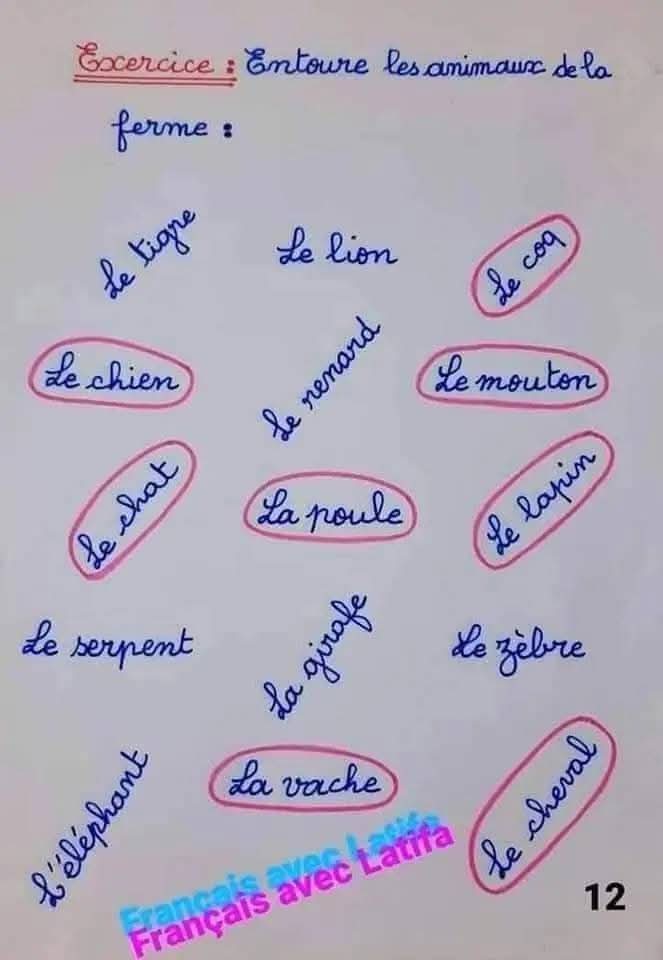 Exercice : Entoure les animaux de la
ferme :
Le tigre
Le lion
Le coq
Le chien
Le renard
Le mouton
Le chat
La poule
Le lapin
Le serpent
La girafe
Le zèbre
L'éléphant
La vache
Le cheval
Français avec Latifa
Français avec Latifa
12